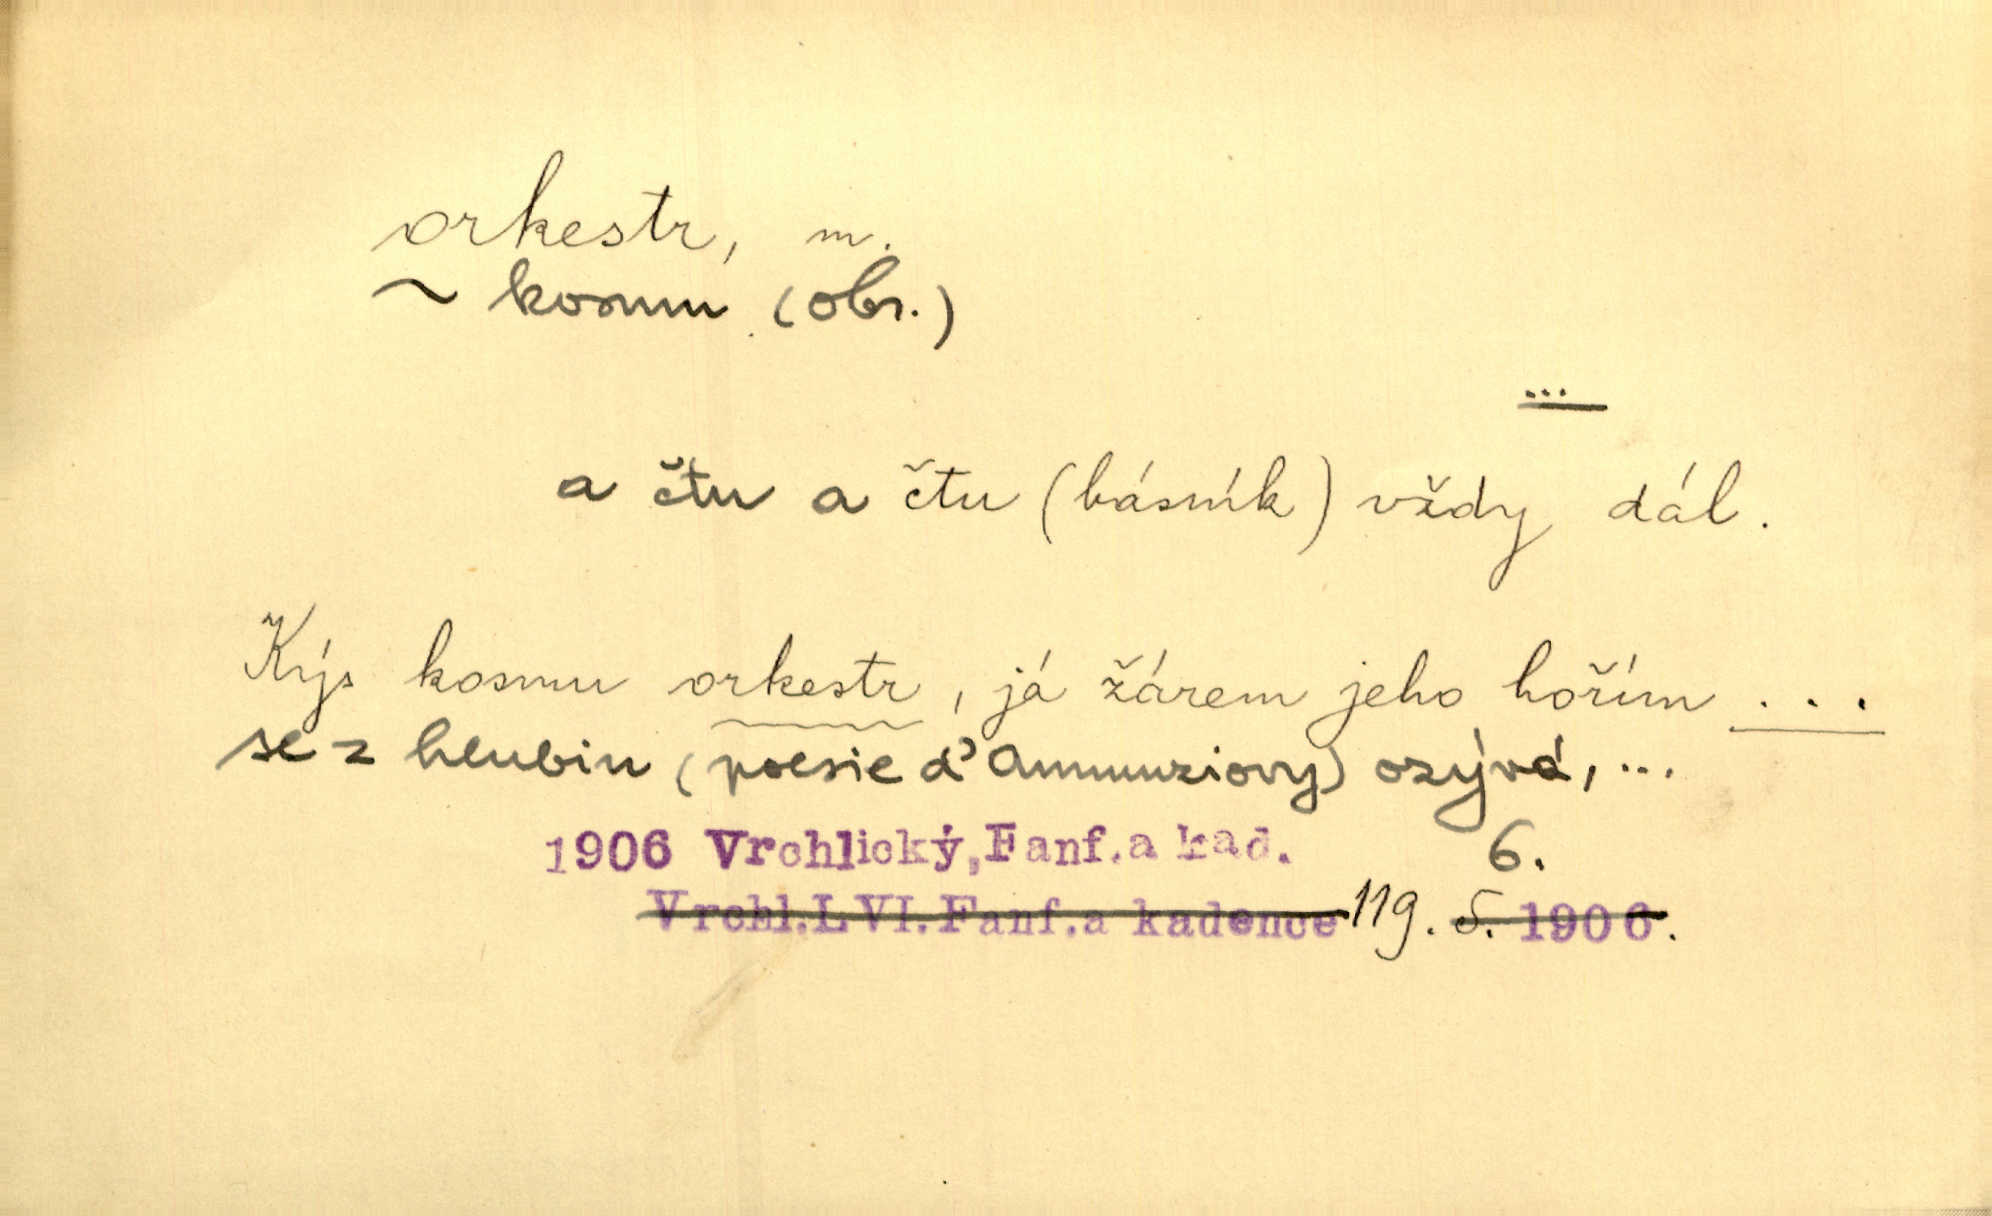 orkestr, m.
~ kosmu (obr.)
...
a čtu a čtu (básník) vždy dál.
Kýs kosmu orkestr, já žárem jeho hořím ...
se z hlubin (poesie d'Annunziovy) ozývá, ...
1906 Vrchlický, Fanf. a kad. 6.
Vrchl. LVI. Fanf. a kadence 119. 5. 1906.